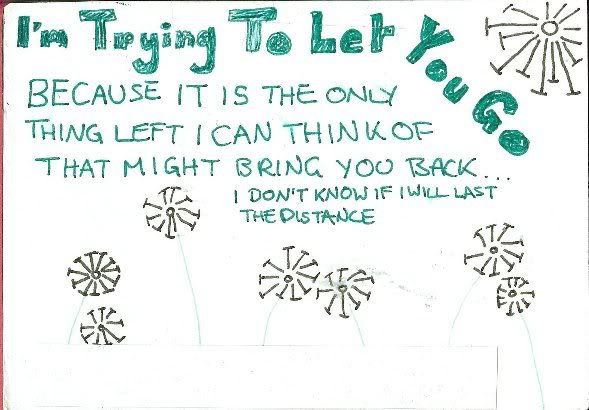 I'm Trying To Let You Go
BECAUSE IT IS THE ONLY
THING LEFT I CAN THINK OF
THAT MIGHT BRING YOU BACK...
I DON'T KNOW IF I WILL LAST
THE DISTANCE